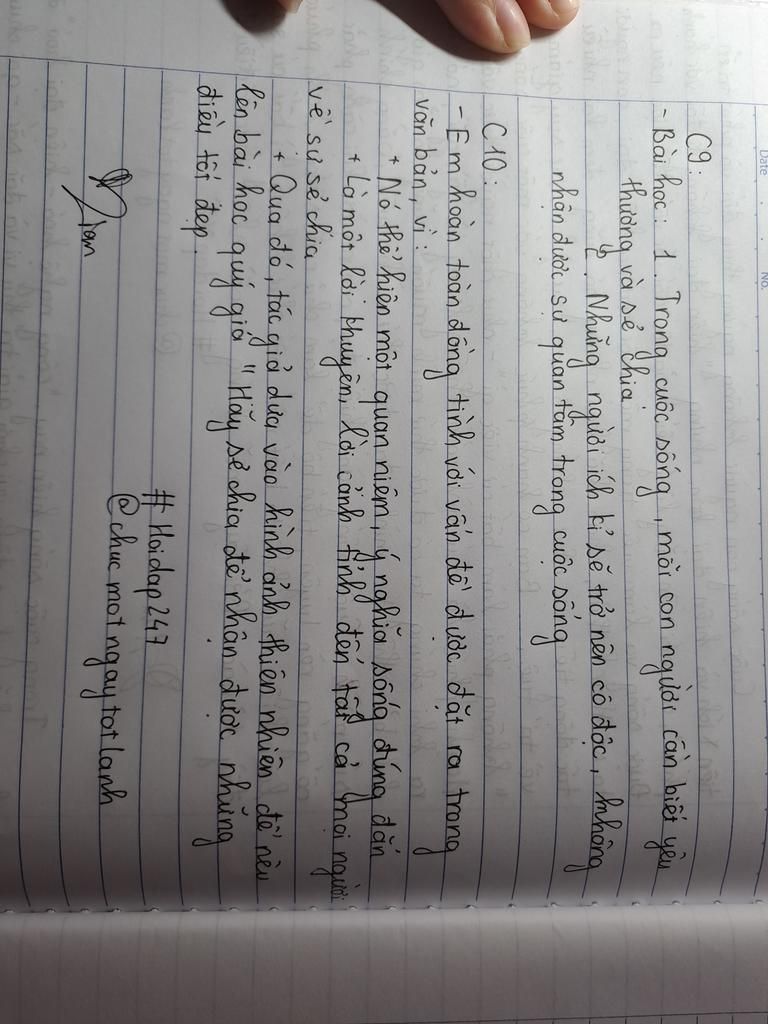 Date
No.
C9:
- Bài học: 1. Trong cuộc sống, mỗi con người cần biết yêu
thương và sẻ chia
2. Những người ích kỉ sẽ trở nên cô độc, không
nhận được sự quan tâm trong cuộc sống
C10:
- Em hoàn toàn đồng tình với vấn đề được đặt ra trong
văn bản, vì:
+ Nó thể hiện một quan niệm, ý nghĩa sống đúng đắn
+ Là một lời khuyên, lời cảnh tỉnh đến tất cả mọi người
về sự sẻ chia
+ Qua đó, tác giả dựa vào hình ảnh thiên nhiên để nêu
lên bài học quý giá "Hãy sẻ chia để nhận được những
điều tốt đẹp.
#Hoidap247
@chucmotngaytotlanh